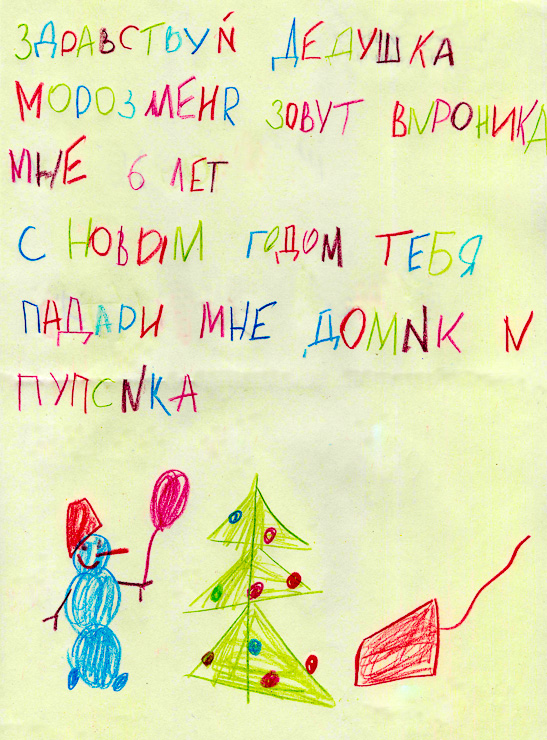 ЗДРАВСТВУЙ ДЕДУШКА
МОРОЗ МЕНЯ ЗОВУТ ВИРОНИКА
МНЕ 6 ЛЕТ
С НОВЫМ ГОДОМ ТЕБЯ
ПАДАРИ МНЕ ДОМИК И
ПУПСИКА